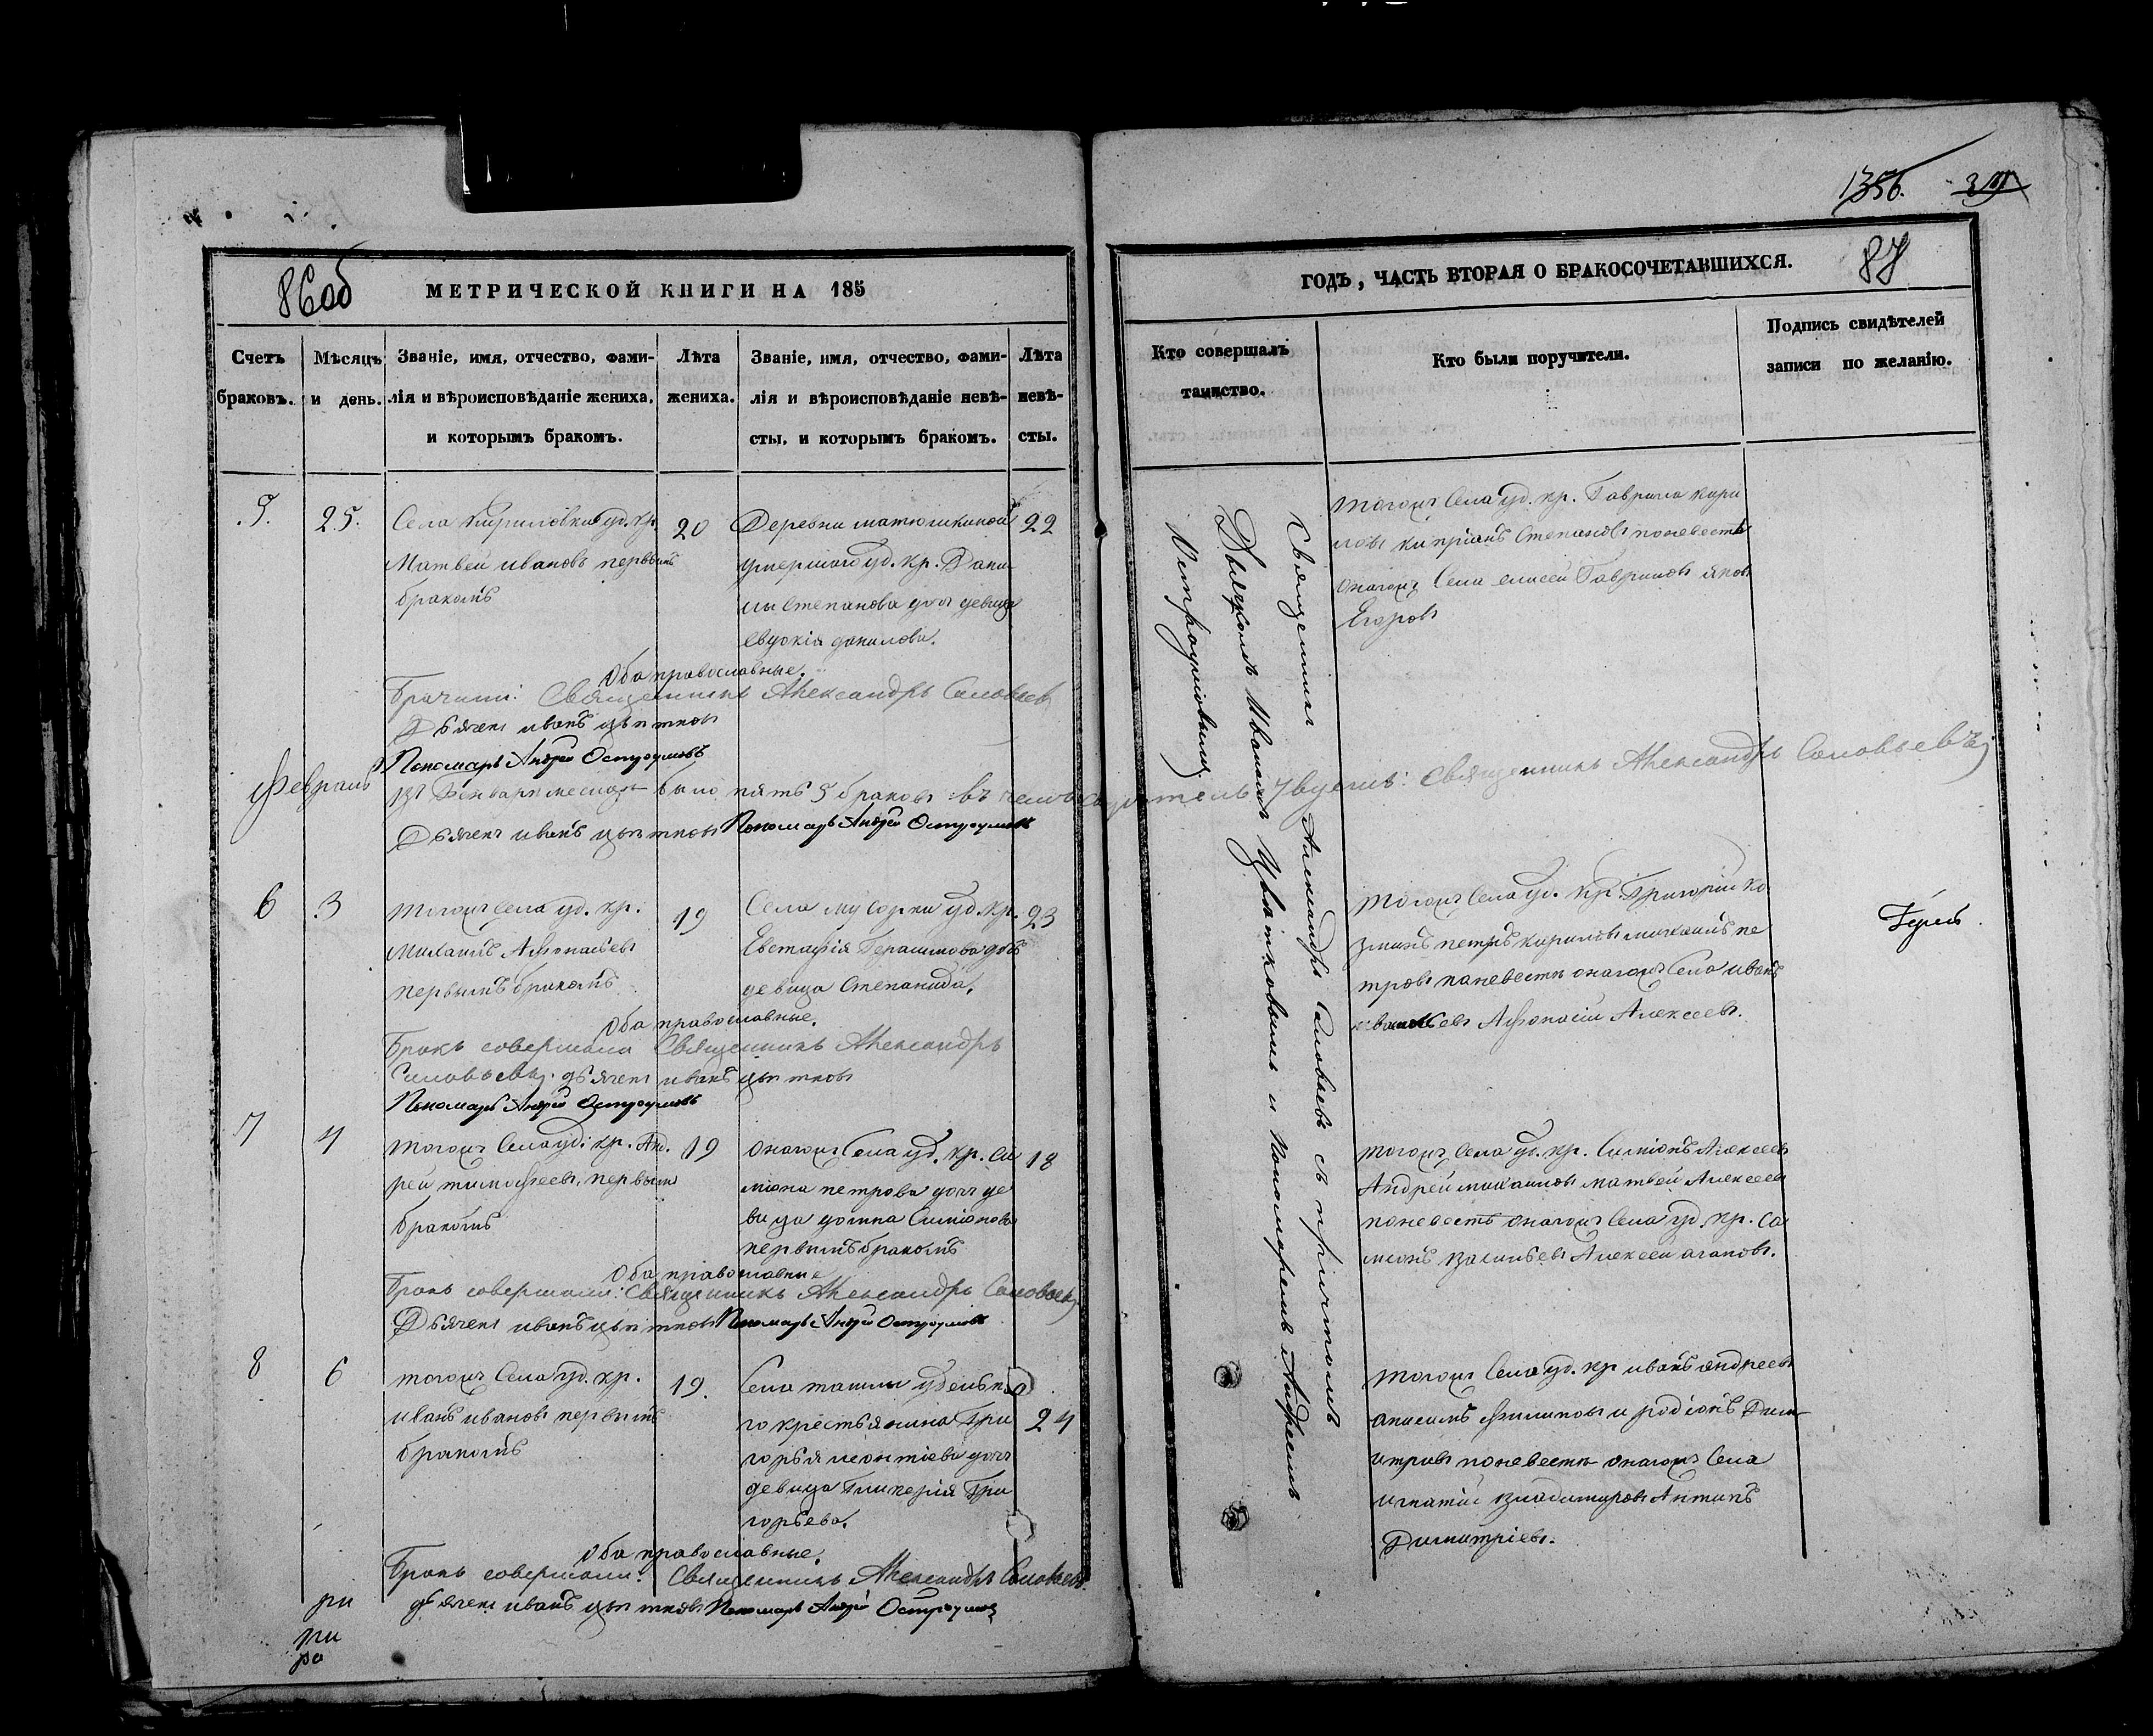 86об
МЕТРИЧЕСКОЙ КНИГИ НА 185
Счетъ
браковъ.
Мѣсяцъ
и день.
Званіе, имя, отчество, фами-
лія и вѣроисповѣданіе жениха,
и которымъ бракомъ.
Лѣта
жениха.
Званіе, имя, отчество, фами-
лія и вѣроисповѣданіе невѣ-
сты, и которымъ бракомъ.
Лѣта
невѣ-
сты.
5.
25.
Села Кириловки уд. кр.
Матвей ивановъ первымъ
бракомъ
20
Деревни матюшкиной
умершаго уд. кр. Дани
лы Степанова дочь девица
евдокія данилова.
22
Оба православные.
Брачили: Священникъ Александръ Соловьевъ
Дьячекъ иванъ цветковъ
Пономарь Андрей Остроумовъ
Февраль
Въ Январе месяце было пять 5 браковъ въ чемъ свидетельствуемъ: Священникъ Александръ Соловьевъ
Дьячекъ иванъ цветковъ Пономарь Андрей Остроумовъ
6
3
тогожъ Села уд. кр.
Михаилъ Афонасьевъ
первымъ бракомъ
19
Села мусорки уд. кр.
Евстафія Герасимова дочь
девица Степанида.
23
Оба православные.
Бракъ совершали Священникъ Александръ
Соловьевъ. дьячекъ иванъ цветковъ
Пономарь Андрей Остроумовъ
7
4
тогожъ Села уд. кр. Анд.
рей тимофеевъ, первым
бракомъ
19
оногожъ Села уд. кр. Си
миона петрова дочь де
вица домна Симионова
первымъ бракомъ
18
Оба православные
Бракъ совершали: Священникъ Александръ Соловьевъ
Дьячекъ иванъ цветковъ Пономарь Андрей Остроумовъ
8
6
тогожъ Села уд. кр.
иванъ ивановъ первымъ
бракомъ
19.
Села ташлы удельна
го крестьянина Гри
горья леонтіева дочь
девица Гликерія Гри
горьева.
24
Оба православные.
Бракъ совершали: Священникъ Александръ Соловьевъ
дьячекъ иванъ цветковъ Пономарь Андрей Остроумов
ри
ри
ро
1356.
87
ГОДЪ, ЧАСТЬ ВТОРАЯ О БРАКОСОЧЕТАВШИХСЯ.
Кто совершалъ
таинство.
Кто были поручители.
Подпись свидѣтелей
записи по желанію.
Священникъ Александръ Соловьевъ съ причтомъ
Дьячкомъ Иваномъ Цветковымъ и Пономаремъ Андреемъ
Остроумовымъ
тогожъ Села уд. кр. Гаврила кири
ловъ киприанъ Степановъ поневесте
оногожъ Села елисей Гавриловъ яковъ
Егоровъ
тогожъ Села уд. кр. Григорий ко
зминъ петръ кириловъ михаилъ пе
тровъ поневесте оногожъ Села иванъ
Афонасій Алексеевъ.
тогожъ Села уд. кр. Симионъ Алексеевъ
Андрей михаиловъ матвей Алексеевъ
поневесте оногожъ Села уд. кр. Си
мионъ васильевъ Алексей агаповъ.
тогожъ Села уд. кр иванъ андреевъ
анисимъ филиповъ и родіонъ Дим
итривъ поневесте оногожъ Села
игнатій владимировъ Антипъ
Димитріевъ.